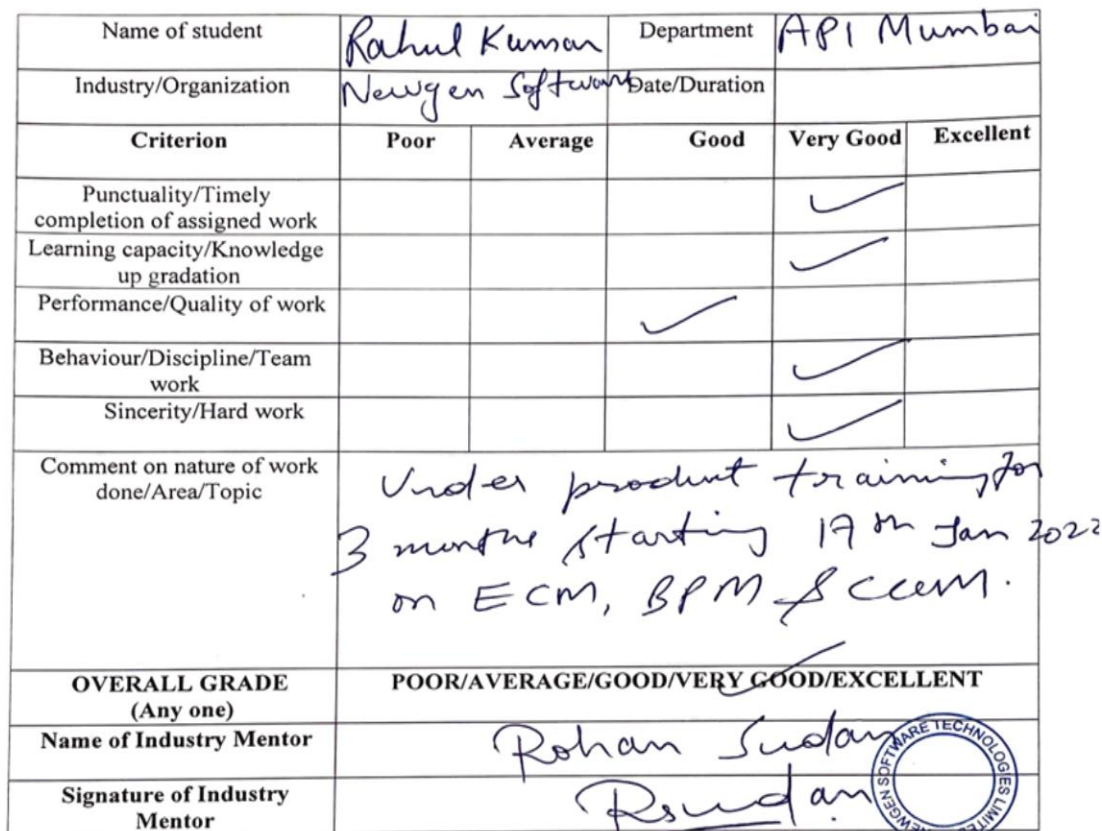 Name of student Rahul Kumar Department API Mumbai
Industry/Organization Newgen Software Date/Duration
Criterion Poor Average Good Very Good Excellent
Punctuality/Timely
completion of assigned work
Learning capacity/Knowledge
up gradation
Performance/Quality of work
Behaviour/Discipline/Team
work
Sincerity/Hard work
Comment on nature of work
done/Area/Topic
Under product training for
3 months starting 17th Jan 2022
on ECM, BPM & CCM.
OVERALL GRADE POOR/AVERAGE/GOOD/VERY GOOD/EXCELLENT
(Any one)
Name of Industry Mentor Rohan Sudan
Signature of Industry Rsudan
Mentor
NEWGEN SOFTWARE TECHNOLOGIES LIMITED